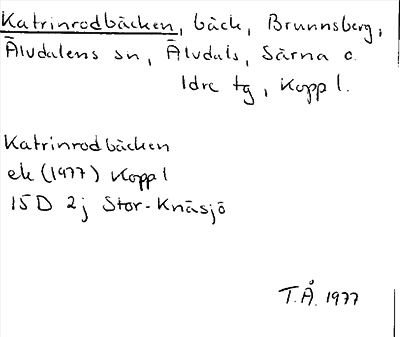 Katrinrodbäcken, bäck, Brunnsberg,
Älvdalens sn, Älvdals, Särna o.
Idre tg, Koppl.
Katrinrodbäcken
ek (1977) Koppl
15D 2j Stor-Knäsjö
T.Å. 1977